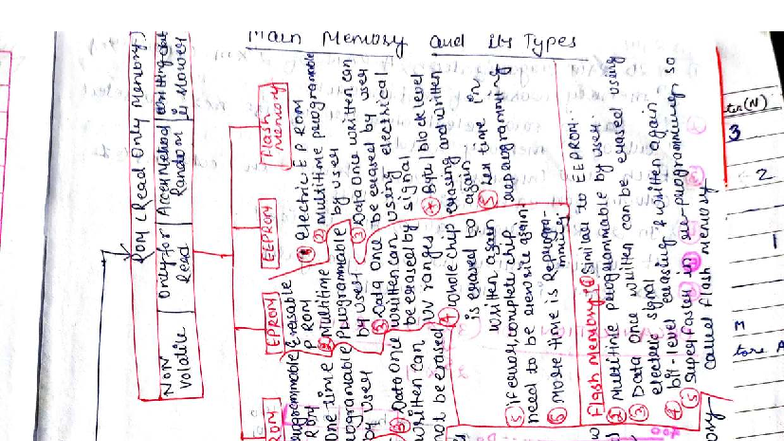 Main Memory and its Types
ROM (Read Only Memory)
Non
Volatile
Only for
Read
Access Method
Random
writing data
is slower
EPROM
EEPROM
Flash
Memory
ROM
ROM
One time
by user
③ Data once
written can
not be erased
Erasable
PROM
② Multitime
Programmable
by user
③ Data once
written can
be erased by
UV ranges
④ whole chip
is erased to
written again
⑤ if error, complete chip
need to be rewrite again
⑥ More time is Reprogra-
mming
① Electric EPROM
② Multitime programmable
by user
③ Data once written can
be erased by user
using electrical
signal
④ Byte/block level
erasing and written
again
⑤ Less time in
reprogramming
Flash Memory: ① Similar to EEPROM.
② Multitime programmable by user.
③ Data once written can be erased using
electric signal
④ bit-level erasing & written again
⑤ Super faster in re-programming, so
called flash memory
(N)
3
2
1
M